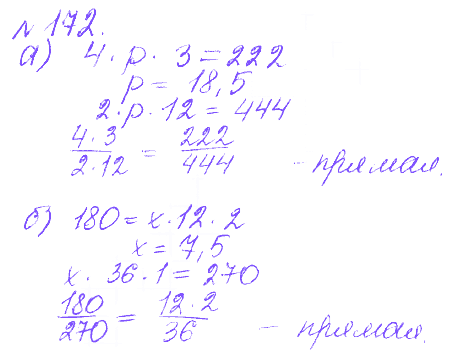 № 172.
а) 4 · p · 3 = 222
p = 18,5
2 · p · 12 = 444
4 · 3 / 2 · 12 = 222 / 444 – прямая.
б) 180 = x · 12 · 2
x = 7,5
x · 36 · 1 = 270
180 / 270 = 12 · 2 / 36 – прямая.